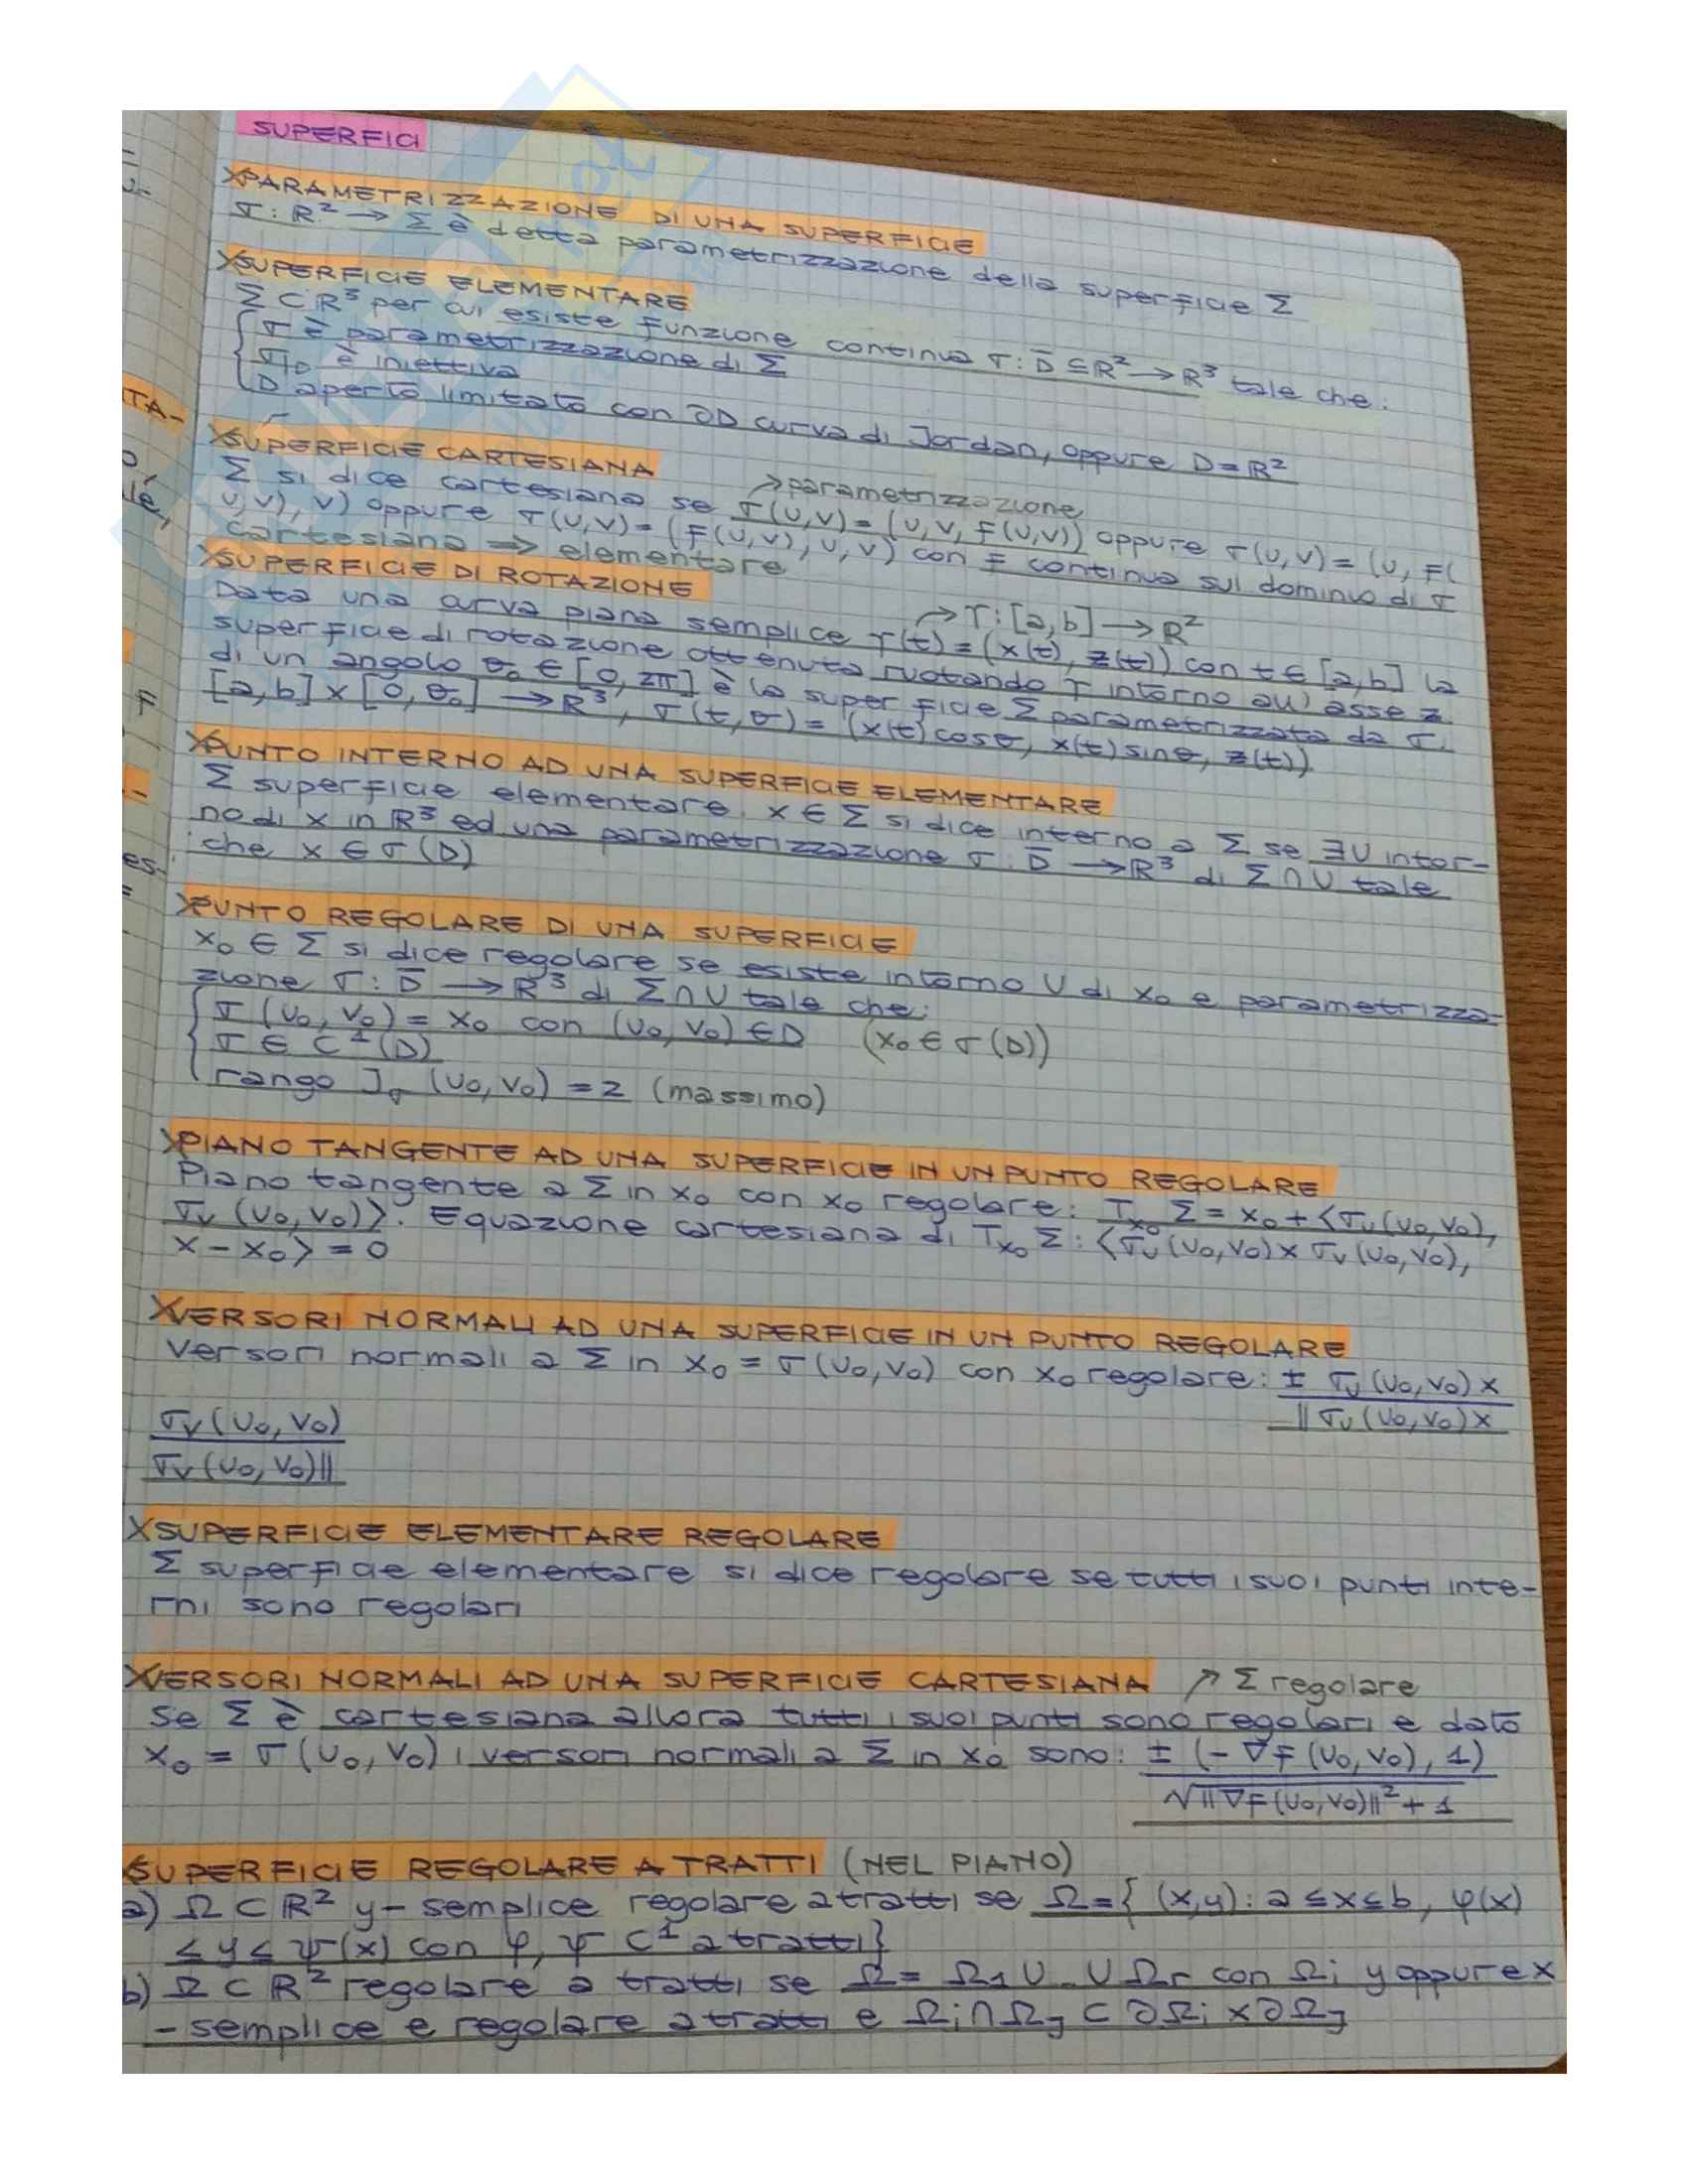 SUPERFICI
PARAMETRIZZAZIONE DI UNA SUPERFICIE
σ: R² → Σ è detta parametrizzazione della superficie Σ
SUPERFICIE ELEMENTARE
Σ ⊂ R³ per cui esiste funzione continua σ: D̄ ⊆ R² → R³ tale che:
σ è parametrizzazione di Σ
σ|D è iniettiva
D aperto limitato con ∂D curva di Jordan, oppure D = R²
SUPERFICIE CARTESIANA
→ parametrizzazione
Σ si dice cartesiana se σ(u,v) = (u, v, F(u,v)) oppure σ(u,v) = (u, F(
u,v), v) oppure σ(u,v) = (F(u,v), u, v) con F continua sul dominio di σ
cartesiana ⇒ elementare
SUPERFICIE DI ROTAZIONE
→ γ: [a,b] → R²
Data una curva piana semplice γ(t) = (x(t), z(t)) con t ∈ [a,b] la
superficie di rotazione ottenuta ruotando γ intorno all'asse z
di un angolo θ₀ ∈ [0, 2π] è la superficie Σ parametrizzata da σ:
[a,b] × [0, θ₀] → R³, σ(t,θ) = (x(t)cosθ, x(t)sinθ, z(t))
PUNTO INTERNO AD UNA SUPERFICIE ELEMENTARE
Σ superficie elementare, x ∈ Σ si dice interno a Σ se ∃U intor-
no di x in R³ ed una parametrizzazione σ: D̄ → R³ di Σ ∩ U tale
che x ∈ σ(D)
PUNTO REGOLARE DI UNA SUPERFICIE
x₀ ∈ Σ si dice regolare se esiste intorno U di x₀ e parametrizza-
zione σ: D̄ → R³ di Σ ∩ U tale che:
σ(u₀, v₀) = x₀ con (u₀, v₀) ∈ D (x₀ ∈ σ(D))
σ ∈ C¹(D)
rango J_σ (u₀, v₀) = 2 (massimo)
PIANO TANGENTE AD UNA SUPERFICIE IN UN PUNTO REGOLARE
Piano tangente a Σ in x₀ con x₀ regolare: T_x₀ Σ = x₀ + ⟨σ_u(u₀,v₀),
σ_v(u₀,v₀)⟩. Equazione cartesiana di T_x₀ Σ: ⟨σ_u(u₀,v₀) × σ_v(u₀,v₀),
x - x₀⟩ = 0
VERSORI NORMALI AD UNA SUPERFICIE IN UN PUNTO REGOLARE
Versori normali a Σ in x₀ = σ(u₀,v₀) con x₀ regolare: ± σ_u(u₀,v₀) ×
‖σ_u(u₀,v₀) ×
σ_v(u₀, v₀)
σ_v(u₀, v₀)‖
SUPERFICIE ELEMENTARE REGOLARE
Σ superficie elementare si dice regolare se tutti i suoi punti inte-
rni sono regolari
VERSORI NORMALI AD UNA SUPERFICIE CARTESIANA ↗ Σ regolare
Se Σ è cartesiana allora tutti i suoi punti sono regolari e dato
x₀ = σ(u₀, v₀) i versori normali a Σ in x₀ sono: ± (-∇F(u₀,v₀), 1)
√‖∇F(u₀,v₀)‖² + 1
SUPERFICIE REGOLARE A TRATTI (NEL PIANO)
a) Ω ⊂ R² y-semplice regolare a tratti se Ω = { (x,y): a ≤ x ≤ b, φ(x)
≤ y ≤ ψ(x) con φ, ψ C¹ a tratti}
b) Ω ⊂ R² regolare a tratti se Ω = Ω₁ ∪ .. ∪ Ωr con Ωi y oppure x
- semplice e regolare a tratti e Ωi ∩ Ωj ⊂ ∂Ωi × ∂Ωj